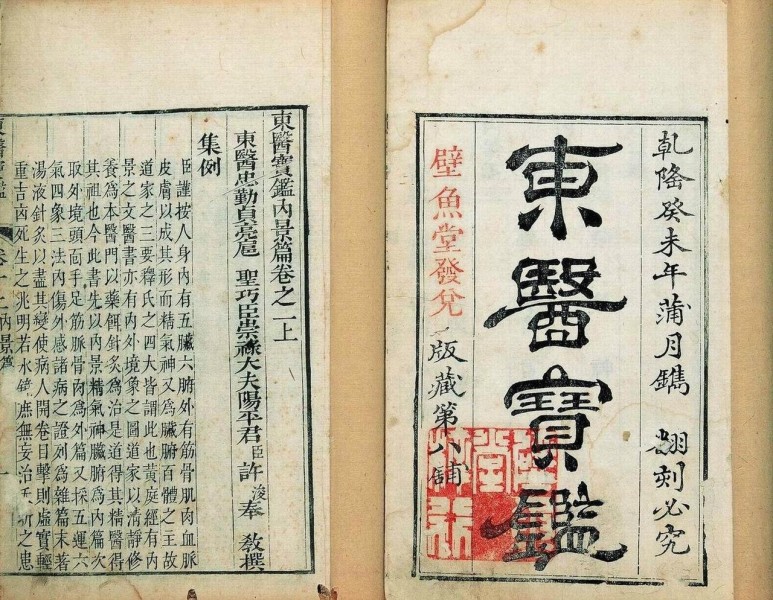 乾隆癸未年蒲月鐫 翻刻必究
東醫寶鑑
壁魚堂發兌 版藏第八鋪
東醫寶鑑內景篇卷之一上
東醫忠勤貞亮扈 聖功臣崇祿大夫陽平君臣許浚奉 教撰
集例
臣謹按人身內有五臟六腑外有筋骨肌肉血脈
皮膚以成其形而精氣神又爲臟腑百體之主故
道家之三要釋氏之四大皆謂此也黃庭經有內
景之文醫書亦有內外境象之圖道家以清靜修
養爲本醫門以藥餌針灸爲治是道得其精醫得
其粗也今此書先以內景精氣神臟腑爲內篇次
取外境頭面手足筋脈骨肉爲外篇又採五運六
氣四象三法內傷外感諸病之證列爲雜篇末著
湯液針灸以盡其變使病人開卷目擊則虛實輕
重吉凶死生之兆明若水鏡庶無妄治夭折之患